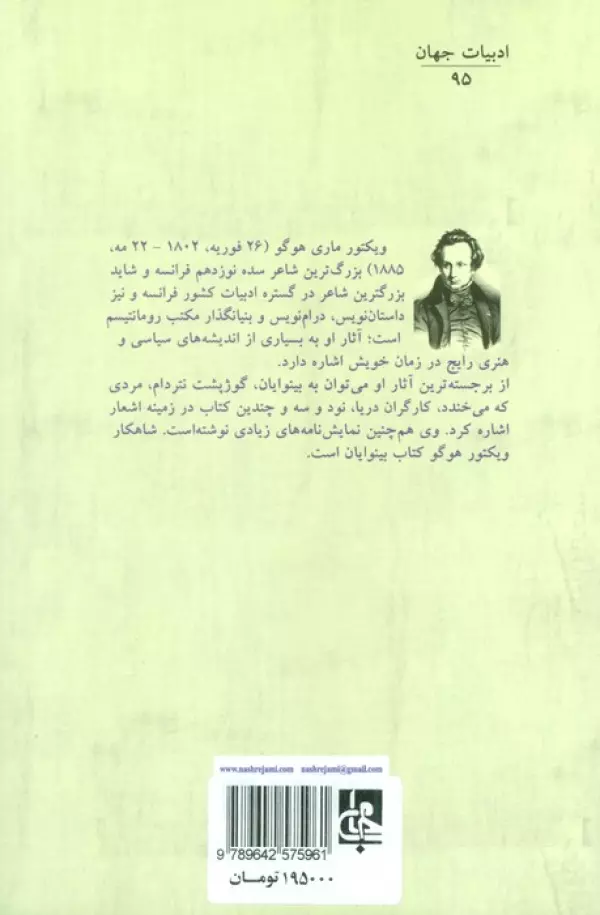 ادبیات جهان
۹۵
ویکتور ماری هوگو (۲۶ فوریه، ۱۸۰۲ - ۲۲ مه،
۱۸۸۵) بزرگ‌ترین شاعر سده نوزدهم فرانسه و شاید
بزرگترین شاعر در گستره ادبیات کشور فرانسه و نیز
داستان‌نویس، درام‌نویس و بنیانگذار مکتب رومانتیسم
است؛ آثار او به بسیاری از اندیشه‌های سیاسی و
هنری رایج در زمان خویش اشاره دارد.
از برجسته‌ترین آثار او می‌توان به بینوایان، گوژپشت نتردام، مردی
که می‌خندد، کارگران دریا، نود و سه و چندین کتاب در زمینه اشعار
اشاره کرد. وی هم‌چنین نمایش‌نامه‌های زیادی نوشته‌است. شاهکار
ویکتور هوگو کتاب بینوایان است.
www.nashrejami.com nashrejami@gmail.com
9 789642 575961
۱۹۵۰۰۰ تومـان